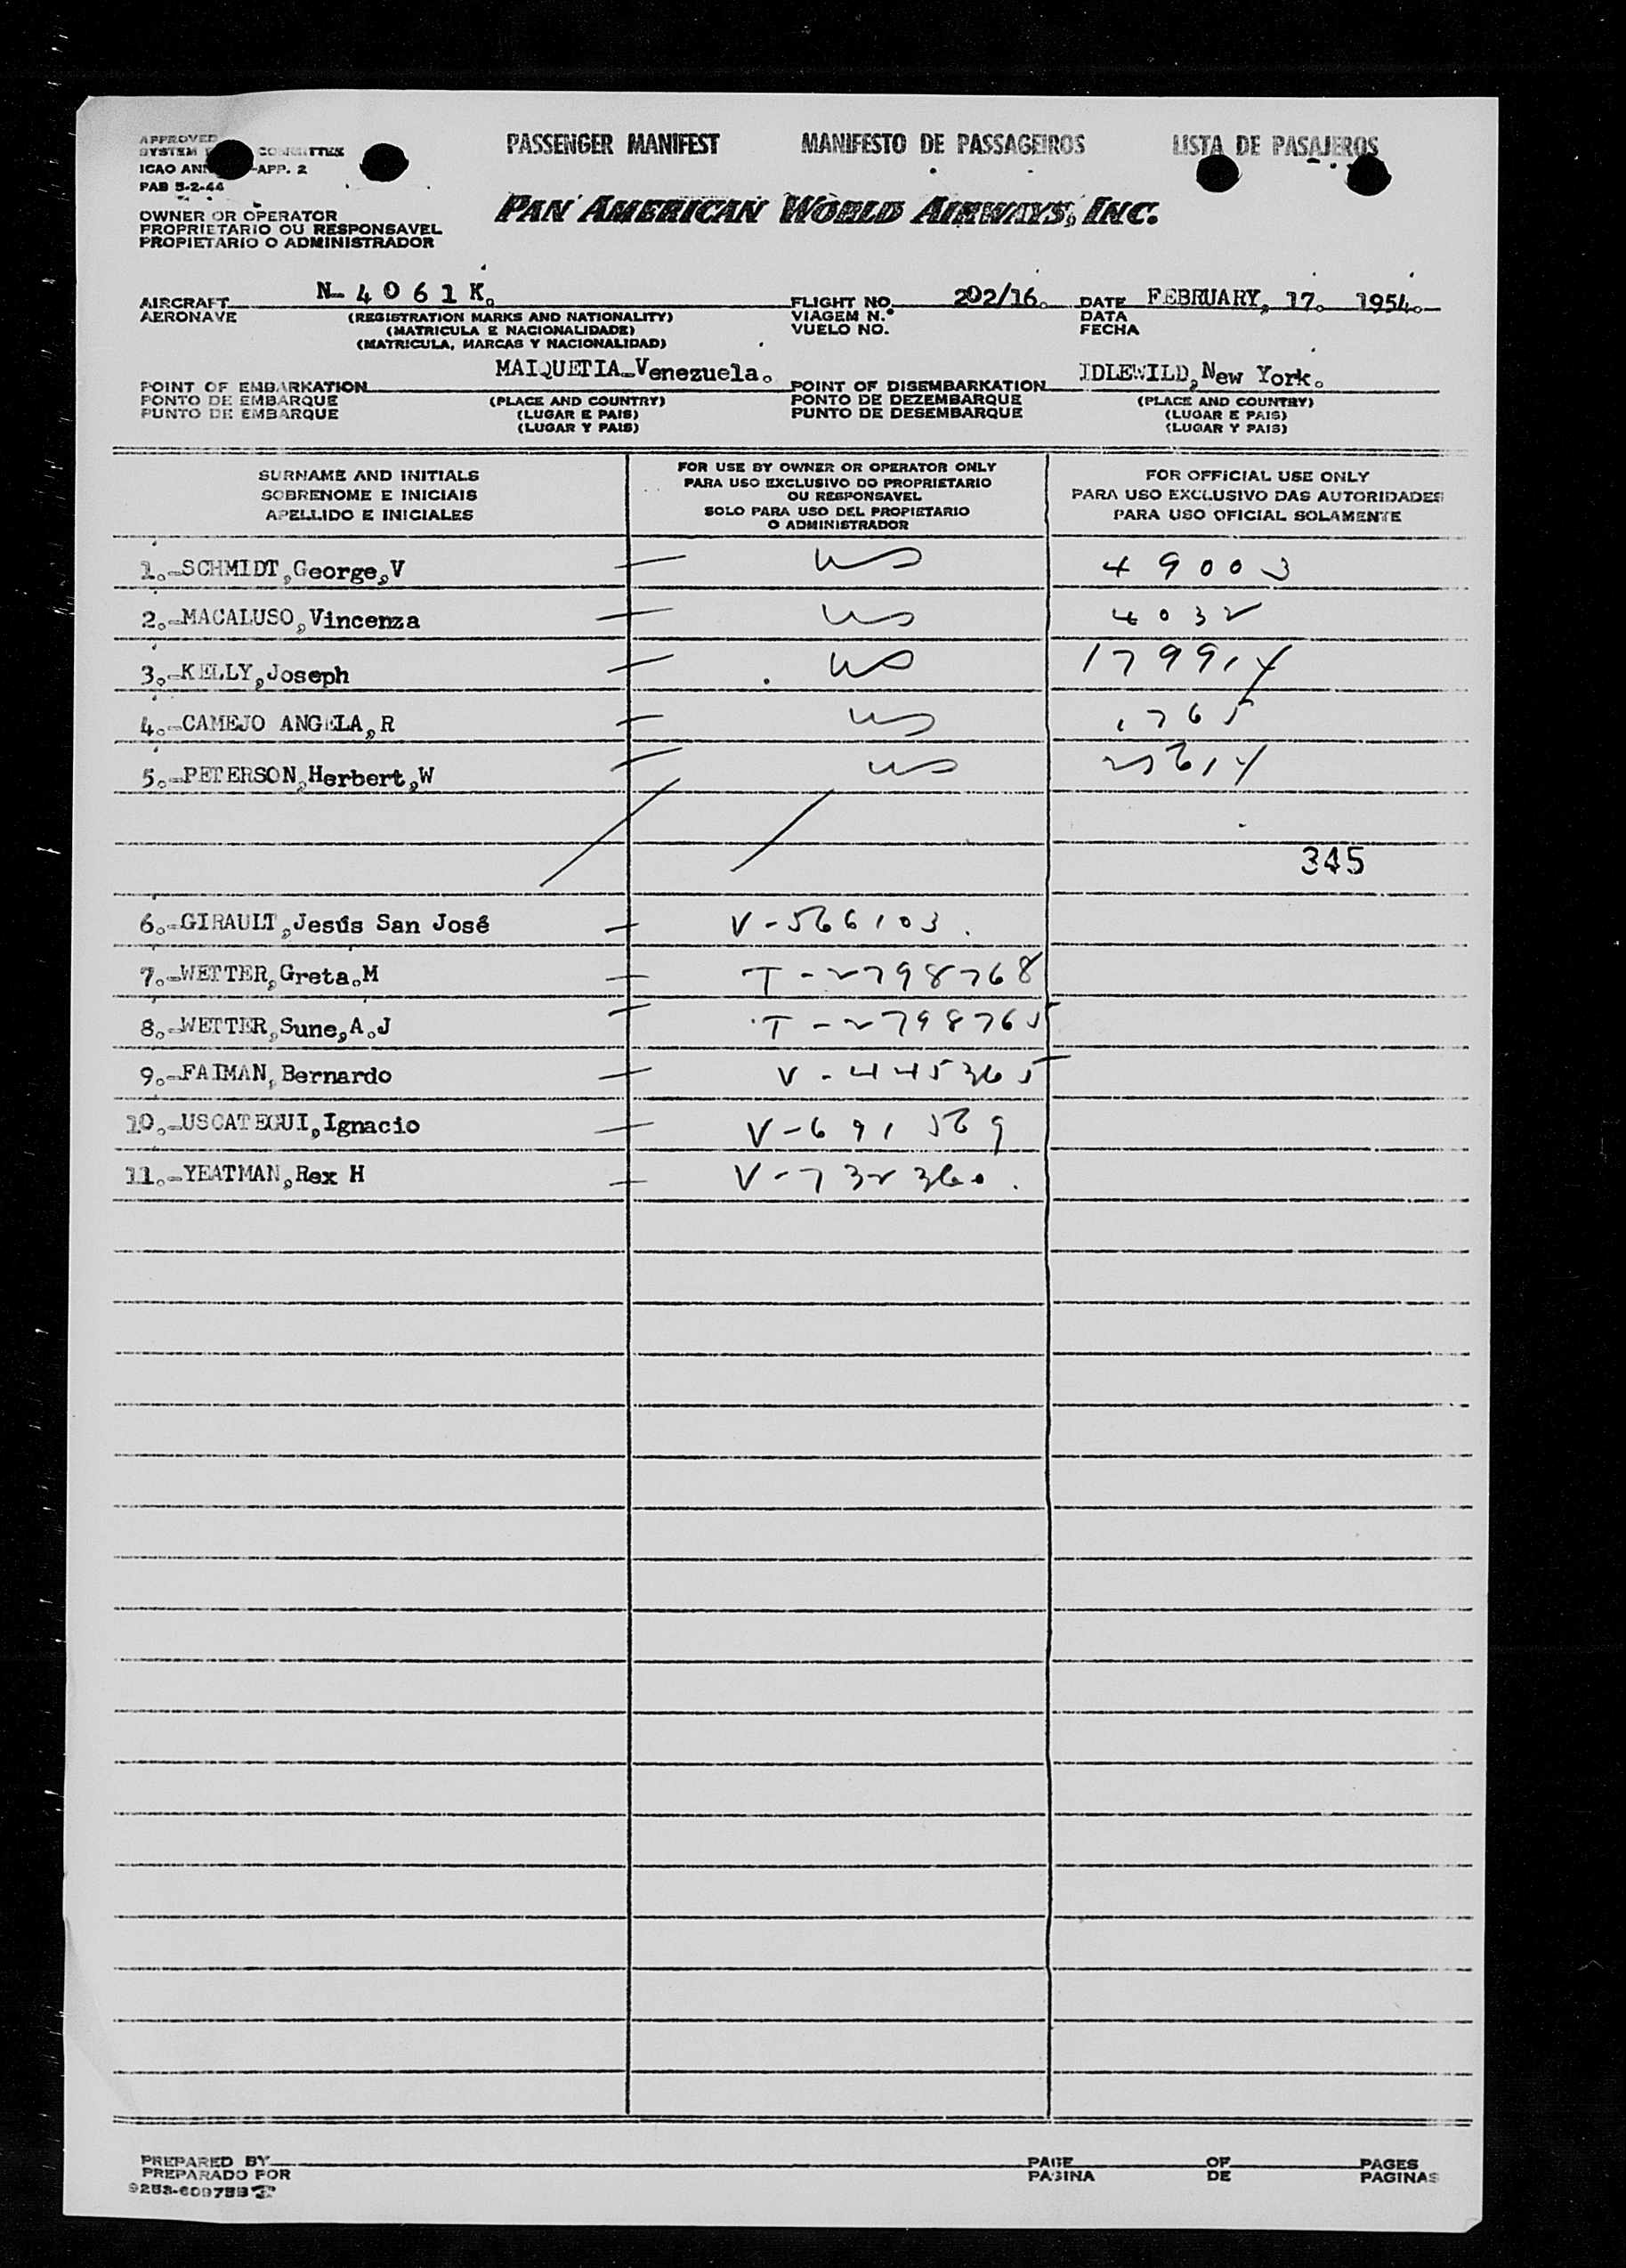 APPROVED
SYSTEM COMMITTEE
ICAO ANN -APP. 2
PAB 5-2-44
PASSENGER MANIFEST MANIFESTO DE PASSAGEIROS LISTA DE PASAJEROS
PAN AMERICAN WORLD AIRWAYS, INC.
OWNER OR OPERATOR
PROPRIETARIO OU RESPONSAVEL
PROPIETARIO O ADMINISTRADOR
AIRCRAFT N- 4 0 6 1 K. FLIGHT NO. 202/16. DATE FEBRUARY, 17. 1954.
AERONAVE (REGISTRATION MARKS AND NATIONALITY) VIAGEM N.º DATA
(MATRICULA E NACIONALIDADE) VUELO NO. FECHA
(MATRICULA, MARCAS Y NACIONALIDAD)
POINT OF EMBARKATION MAIQUETIA-Venezuela. POINT OF DISEMBARKATION IDLEWILD, New York.
PONTO DE EMBARQUE (PLACE AND COUNTRY) PONTO DE DEZEMBARQUE (PLACE AND COUNTRY)
PUNTO DE EMBARQUE (LUGAR E PAIS) PUNTO DE DESEMBARQUE (LUGAR E PAIS)
(LUGAR Y PAIS) (LUGAR Y PAIS)
SURNAME AND INITIALS
SOBRENOME E INICIAIS
APELLIDO E INICIALES
FOR USE BY OWNER OR OPERATOR ONLY
PARA USO EXCLUSIVO DO PROPRIETARIO
OU RESPONSAVEL
SOLO PARA USO DEL PROPIETARIO
O ADMINISTRADOR
FOR OFFICIAL USE ONLY
PARA USO EXCLUSIVO DAS AUTORIDADES
PARA USO OFICIAL SOLAMENTE
1.-SCHMIDT,George,V US 49003
2.-MACALUSO,Vincenza US 4032
3.-KELLY,Joseph US 179914
4.-CAMEJO ANGELA,R US 1765
5.-PETERSON,Herbert,W US
345
6.-GIRAULT,Jesús San José V-566103.
7.-WETTER,Greta.M T-2798768
8.-WETTER,Sune,A.J T-2798765
9.-FAIMAN,Bernardo V-445365
10.-USCATEGUI,Ignacio V-691569
11.-YEATMAN,Rex H V-732360.
PREPARED BY PAGE OF PAGES
PREPARADO POR PAGINA DE PAGINAS